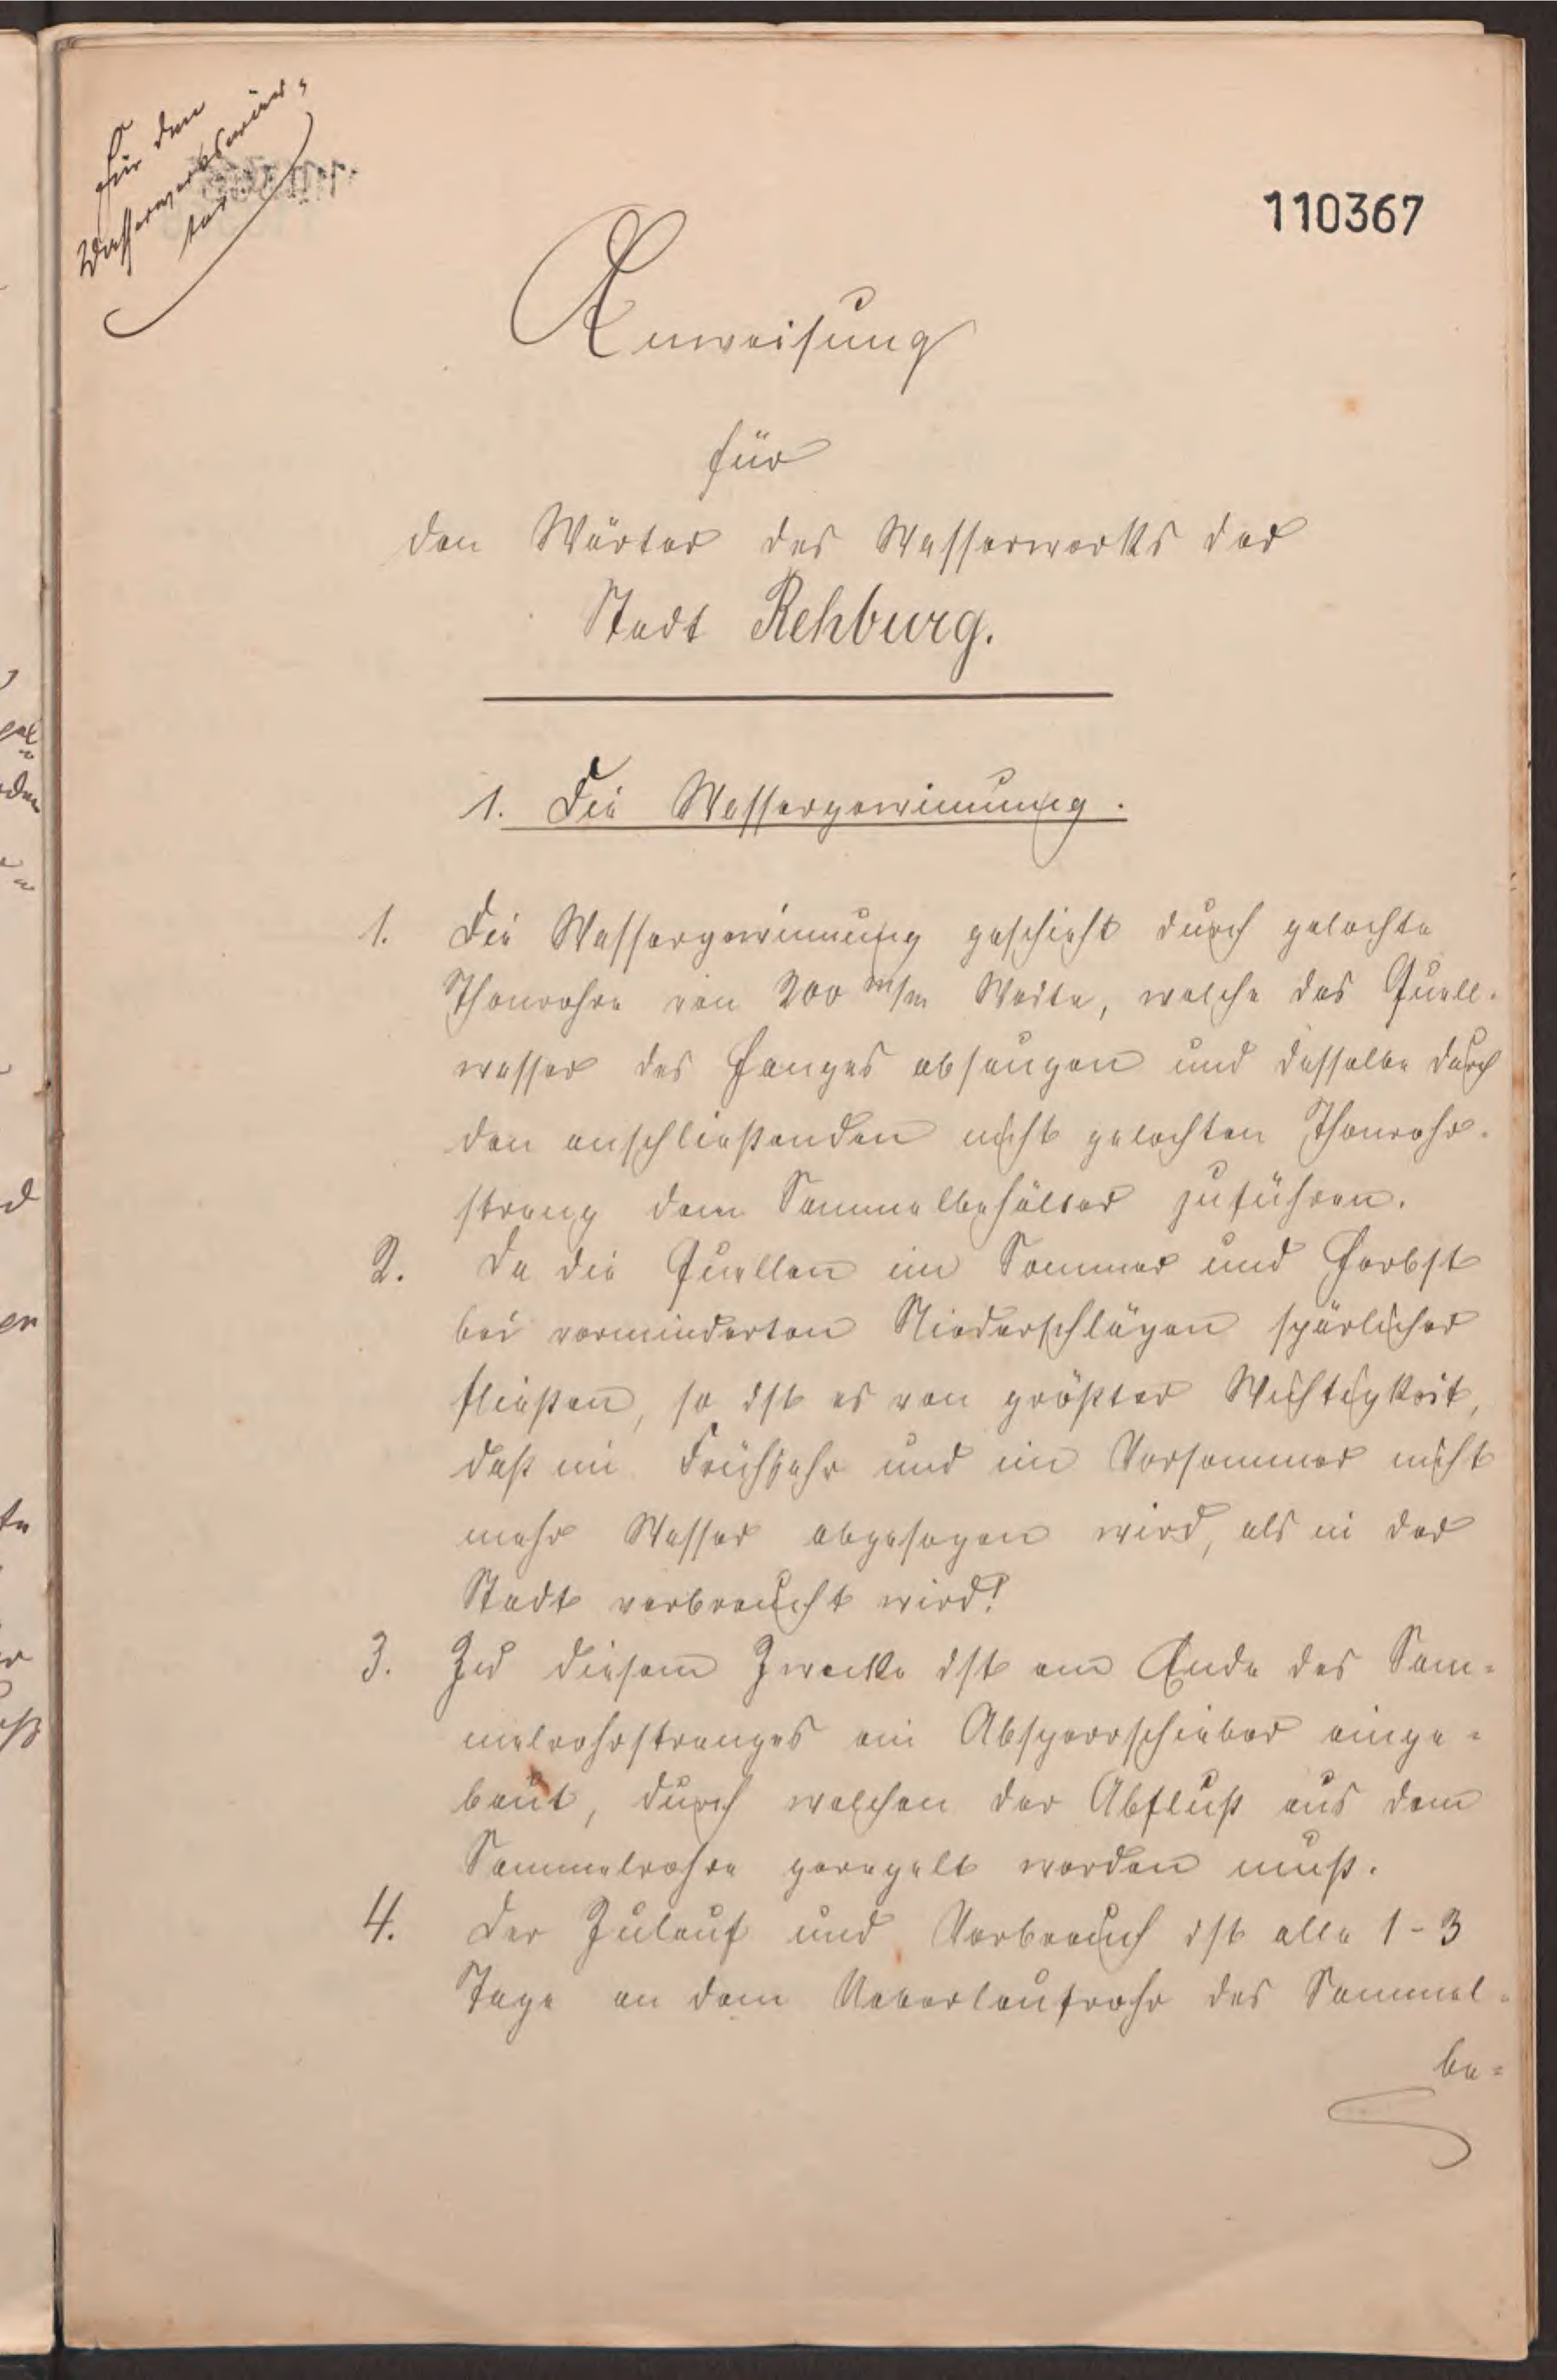 Für den
Wasserwerkswär-
ter
110367
Anweisung
für
den Wärter des Wasserwerks der
Stadt Rehburg.
1. Die Wassergewinnung.
1. Die Wassergewinnung geschieht durch gelochte
Thonrohre von 200 m/m Weite, welche das Quell-
wasser des Hanges absaugen und dasselbe durch
den anschließenden nicht gelochten Thonrohr-
strang dem Sammelbehälter zuführen.
2. Da die Quellen im Sommer und Herbst
bei verminderten Niederschlägen spärlicher
fließen, so ist es von größter Wichtigkeit,
daß im Frühjahr und im Vorsommer nicht
mehr Wasser abgesogen wird, als in der
Stadt verbraucht wird!
3. Zu diesem Zwecke ist am Ende des Sam-
melrohrstranges ein Absperrschieber einge-
baut, durch welchen der Abfluß aus dem
Sammelrohre geregelt werden muß.
4. Der Zulauf und Verbrauch ist alle 1-3
Tage an dem Ueberlaufrohr des Sammel-
be-